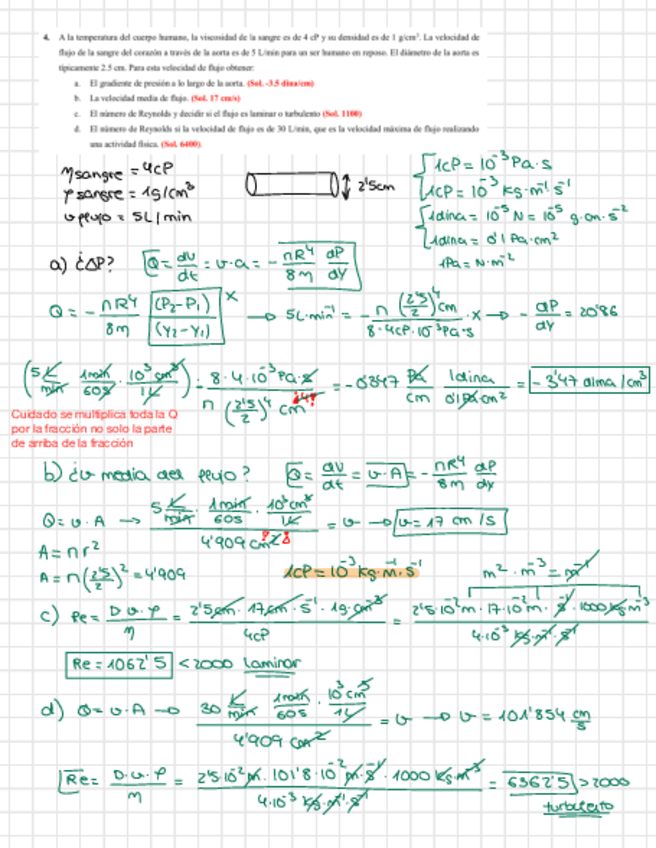 4. A la temperatura del cuerpo humano, la viscosidad de la sangre es de 4 cP y su densidad es de 1 g/cm³. La velocidad de
flujo de la sangre del corazón a través de la aorta es de 5 L/min para un ser humano en reposo. El diámetro de la aorta es
típicamente 2.5 cm. Para esta velocidad de flujo obtener:
a. El gradiente de presión a lo largo de la aorta. (Sol. -3.5 dina/cm)
b. La velocidad media de flujo. (Sol. 17 cm/s)
c. El número de Reynolds y decidir si el flujo es laminar o turbulento (Sol. 1100)
d. El número de Reynolds si la velocidad de flujo es de 30 L/min, que es la velocidad máxima de flujo realizando
una actividad física. (Sol. 6400)
η sangre = 4cP
ρ sangre = 1g/cm³
v flujo = 5L/min
2'5cm
1cP = 10⁻³ Pa·s
1cP = 10⁻³ kg·m⁻¹ s⁻¹
1dina = 10⁻⁵ N = 10⁻⁵ g·cm·s⁻²
1dina = 0'1 Pa·cm²
1Pa = N·m⁻²
a) ¿ΔP? Q = dV/dt = v·a = - πR⁴/8η dP/dy
Q = - πR⁴/8η (P₂-P₁)/(Y₂-Y₁) x → 5L·min⁻¹ = - π (2'5/2)⁴ cm / 8·4cP·10⁻³Pa·s · x → - dP/dy = 20'86
(5 L/min · 1min/60s · 10³ cm³/1L) · 8·4·10⁻³ Pa·s / π (2'5/2)⁴ cm⁴ = -0'347 Pa/cm · 1dina/0'1Pa·cm² = -3'47 dina/cm³
Cuidado se multiplica toda la Q
por la fracción no solo la parte
de arriba de la fracción
b) ¿v media del flujo? Q = dV/dt = v·A = - πR⁴/8η dP/dy
Q = v·A → 5 L/min · 1min/60s · 10³cm³/1L / 4'909 cm² = v → v = 17 cm/s
A = πr²
A = π(2'5/2)² = 4'909
1cP = 10⁻³ kg·m·s⁻¹
m²·m⁻³ = m⁻¹
c) Re = D·v·ρ/η = 2'5cm·17cm·s⁻¹·1g·cm⁻³ / 4cP = 2'5·10⁻²m·17·10⁻²m·s⁻¹·1000kg·m⁻³ / 4·10⁻³ kg·m⁻¹·s⁻¹
Re = 1062'5 < 2000 Laminar
d) Q = v·A → 30 L/min · 1min/60s · 10³cm³/1L / 4'909 cm² = v → v = 101'854 cm/s
Re = D·v·ρ/η = 2'5·10⁻²m·101'8·10⁻²m·s⁻¹·1000 kg·m⁻³ / 4·10⁻³ kg·m⁻¹·s⁻¹ = 6362'5 > 2000
turbulento